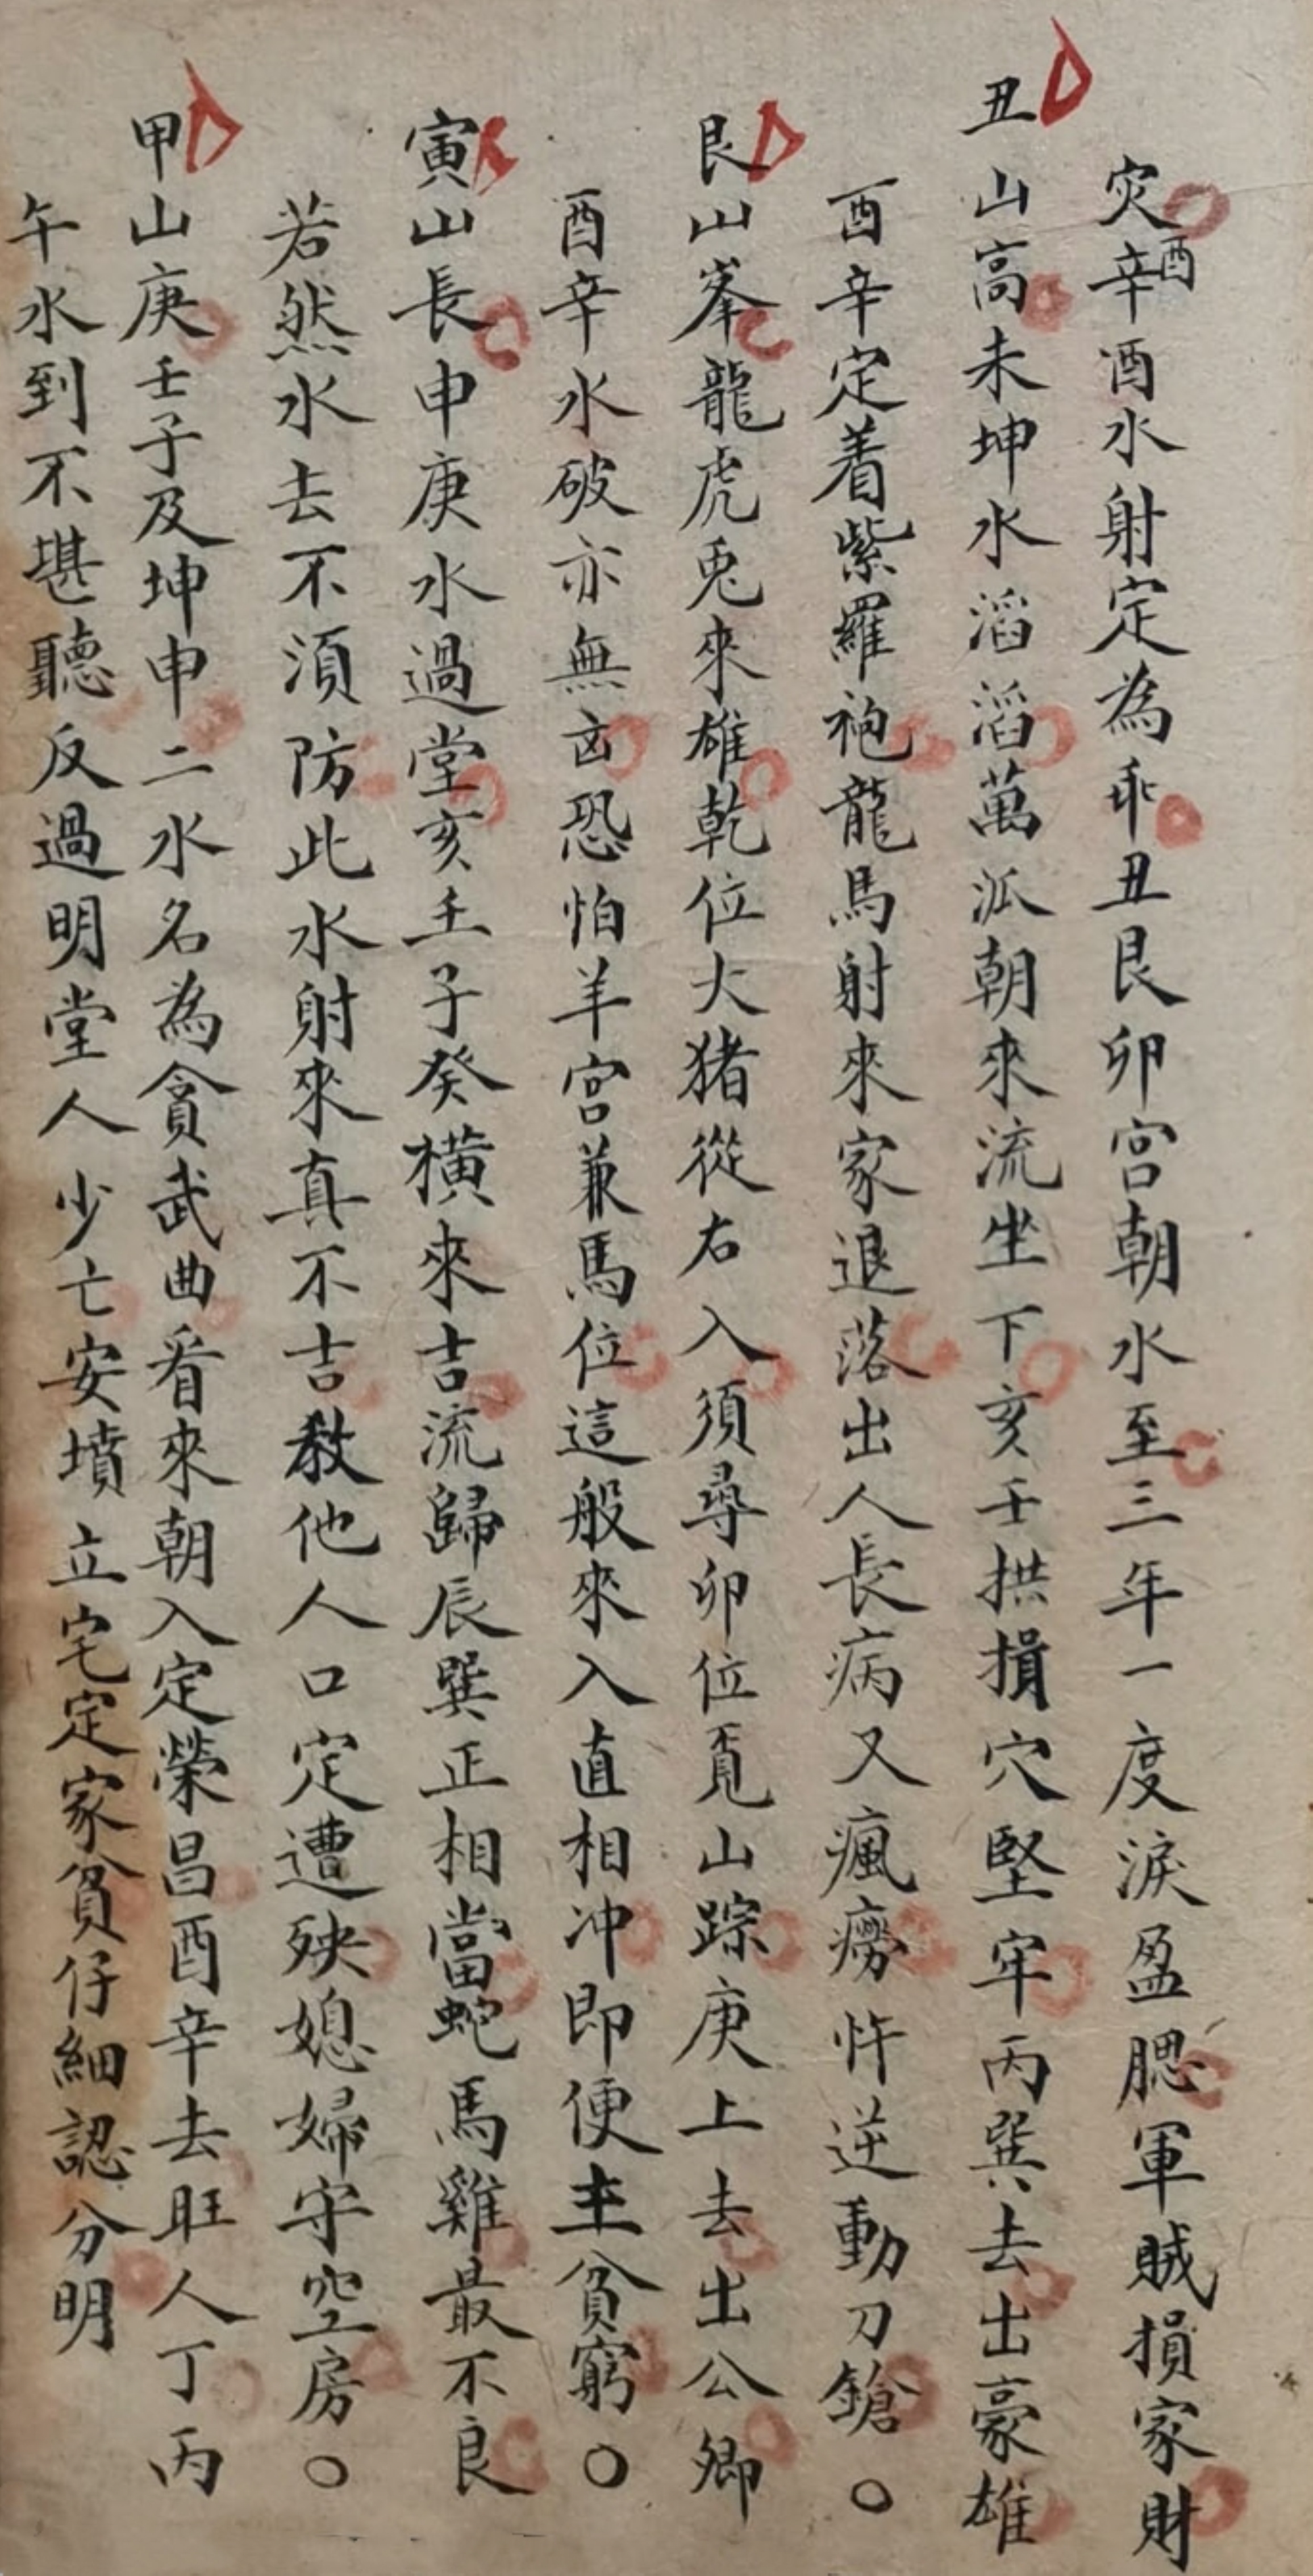 灾辛酉酉水射定為乖丑艮卯宮朝水至三年一度淚盈腮軍賊損家財
丑山高未坤水滔滔萬派朝來流坐下亥壬拱損穴堅牢丙巽去出豪雄
酉辛定着紫羅袍龍馬射來家退落出人長病又瘋癆忤逆動刀鎗○
艮山峯龍虎兎來雄乾位犬猪從右入須尋卯位覓山踪庚上去出公卿
酉辛水破亦無凶恐怕羊宮兼馬位這般來入直相冲即便主貧窮○
寅山長申庚水過堂亥壬子癸橫來吉流歸辰巽正相當蛇馬雞最不良
若然水去不須防此水射來真不吉教他人口定遭殃媳婦守空房○
甲山庚壬子及坤申二水名為貪武曲看來朝入定榮昌酉辛去旺人丁丙
午水到不堪聽反過明堂人少亡安墳立宅定家貧仔細認分明